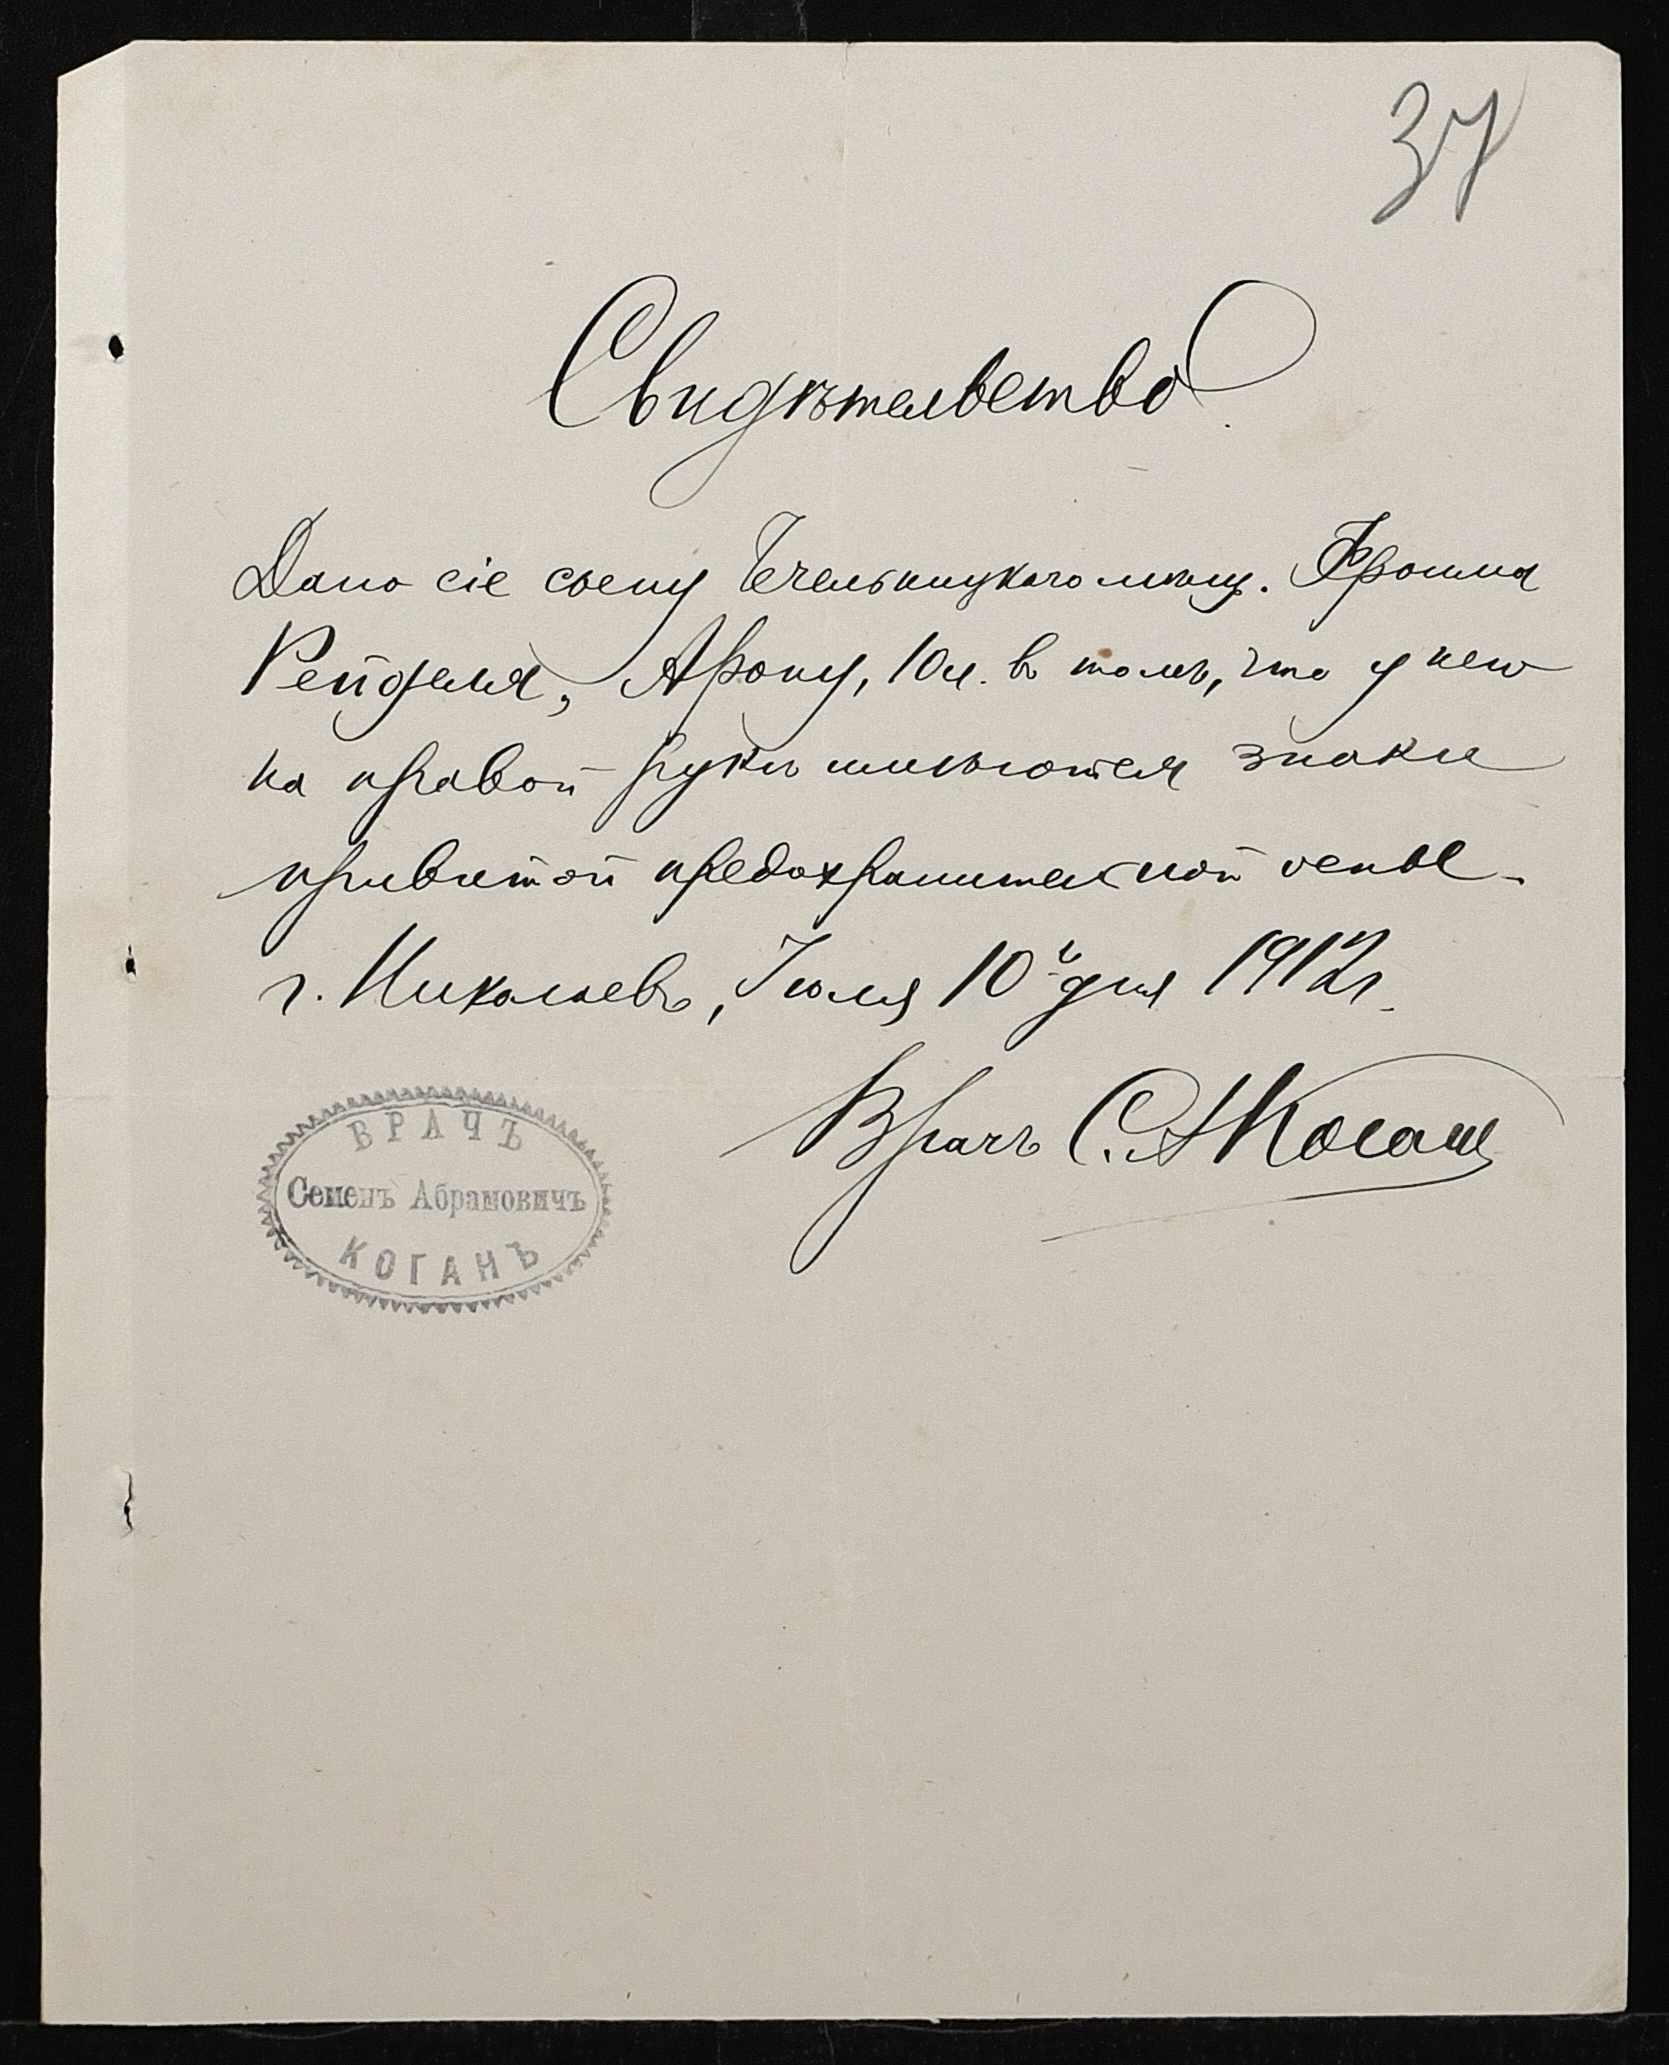 37
Свидѣтельство.
Дано сіе сыну Бечельницкаго мѣщ. Фроима
Рейделя, Арону, 10 л. въ томъ, что у него
на правой рукѣ имѣются знаки
привитой предохранительной оспы.
г. Николаевъ, Іюля 10го дня 1912 г.
Врачъ С. А. Коганъ
ВРАЧЪ
Семенъ Абрамовичъ
КОГАНЪ